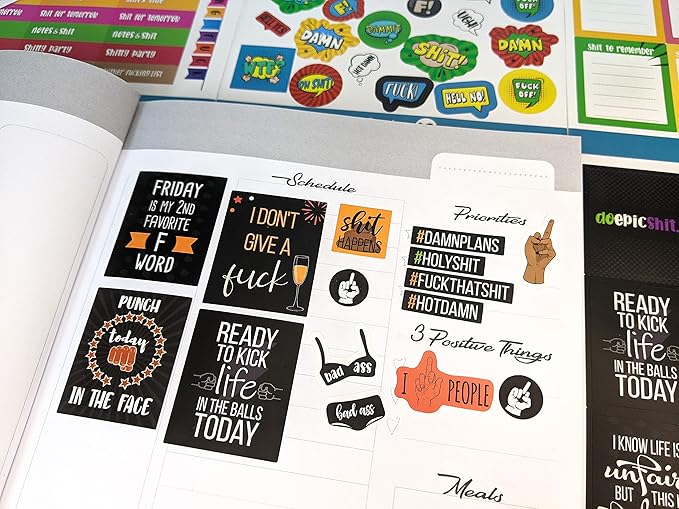 Shit for tomorrow
Shit for tomorrow
notes & shit
Notes & Shit
Shitty party
Shitty Party
HELL YES
DAMN
F!
DAMMIT
UGH!
WTF
OH SHIT!
HOT DAMN
SHIT!
DAMN
FUCK!
HELL NO!
FUCK OFF!
FUCK OFF!
Shit to remember
Schedule
FRIDAY
IS MY 2ND
FAVORITE
F
WORD
I DON'T
GIVE A
fuck
shit
HAPPENS
PUNCH
today
IN THE FACE
READY
TO KICK
life
IN THE BALLS
TODAY
bad ass
bad ass
Priorities
#DAMNPLANS
#HOLYSHIT
#FUCKTHATSHIT
#HOTDAMN
3 Positive Things
I
PEOPLE
Meals
doepicshit.
READY
TO KICK
life
IN THE BALLS
TODAY
I KNOW LIFE IS
unfair
BUT THIS